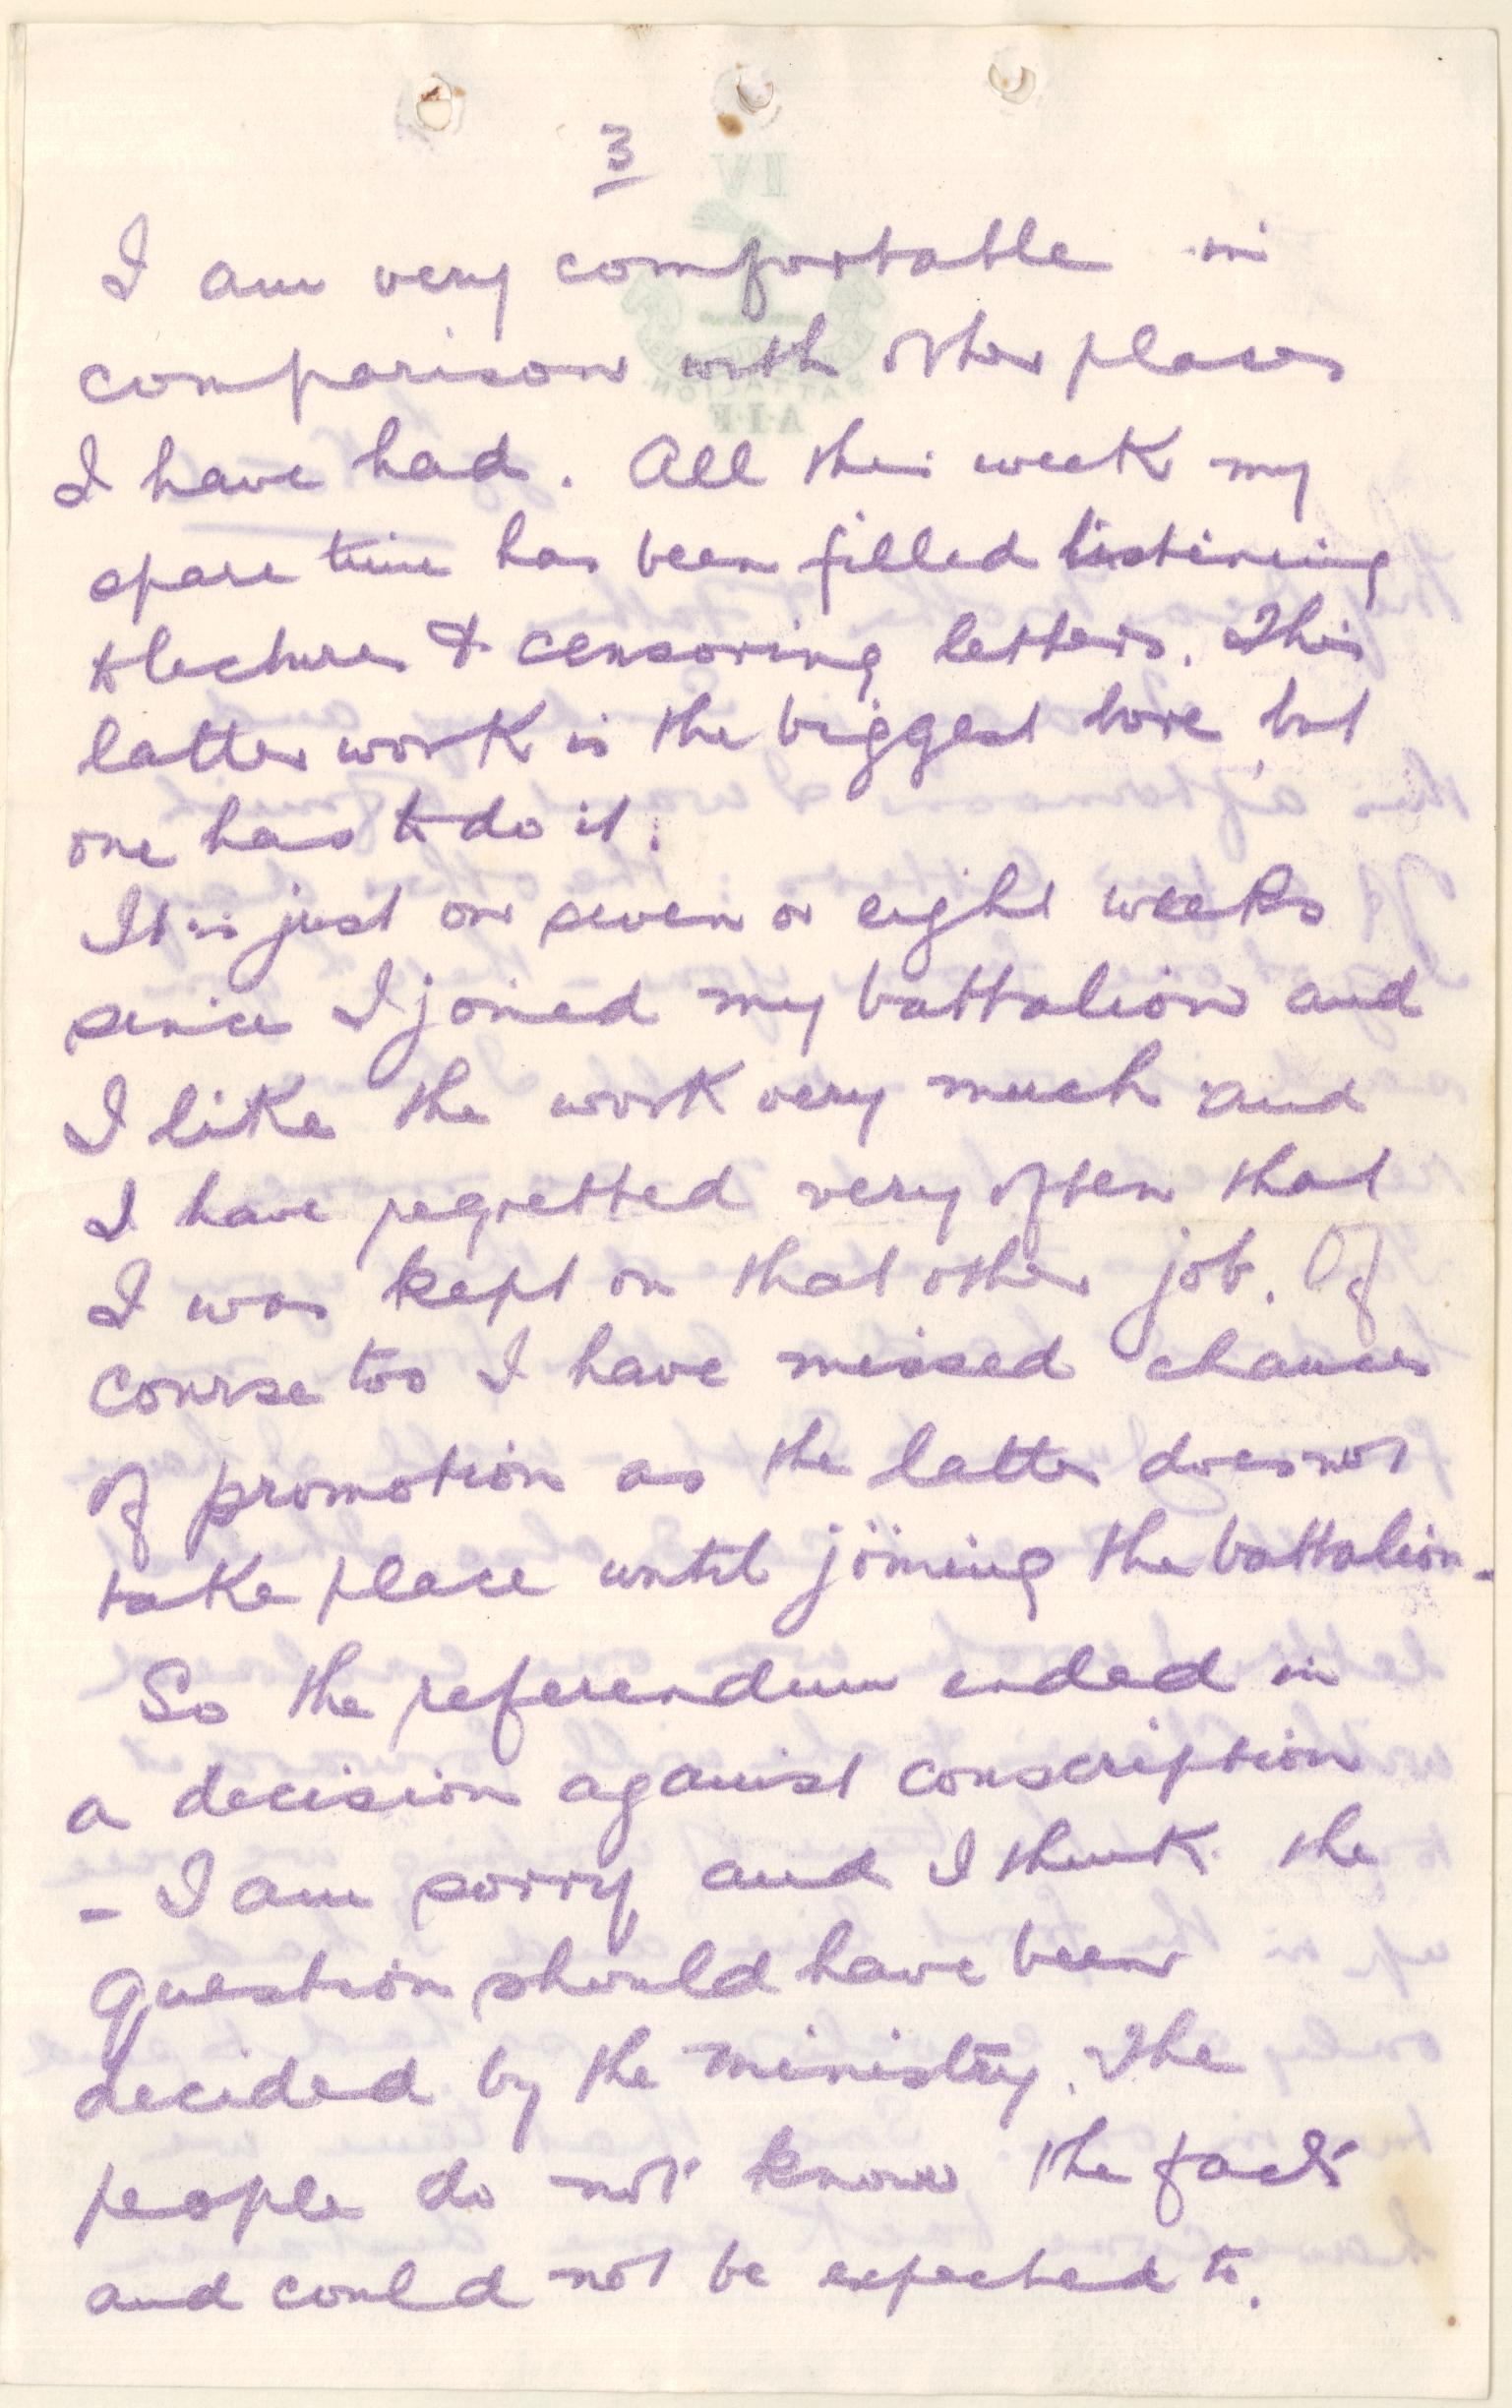 3
I am very comfortable in
comparison with other places
I have had. All this week my
spare time has been filled listening
to lectures & censoring letters. This
latter work is the biggest bore, but
one has to do it.
It is just on seven or eight weeks
since I joined my battalion and
I like the work very much and
I have regretted very often that
I was kept on that other job. Of
course too I have missed chances
of promotion as the latter does not
take place until joining the battalion -
So the referendum ended in
a decision against conscription
- I am sorry and I think the
question should have been
decided by the ministry. The
people do not know the facts
and could not be expected to.